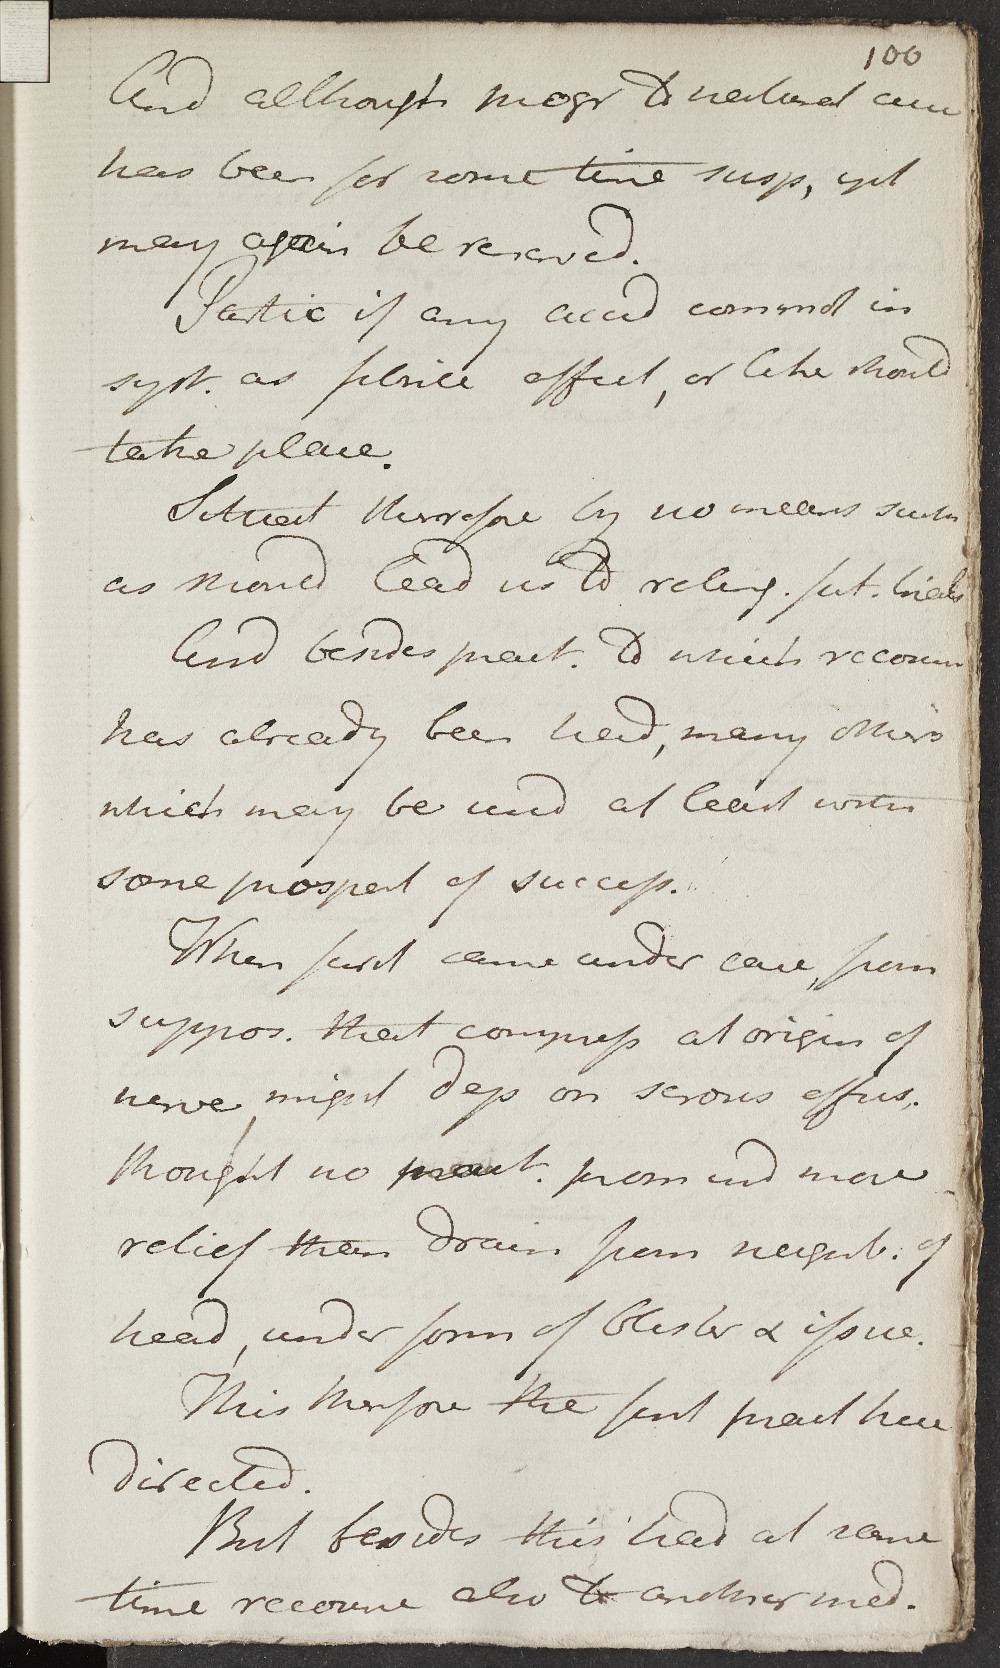 100
And although progr to natural cure
has been for some time susp, yet
may again be renewed.
Partic if any accid commot in
syst. as febrile effect, or like should
take place.
Situat therefore by no means such
as should lead us to relinq. fut. trials
And besides pract. to which recour
has already been had, many others
which may be used at least with
some prospect of success.
When first came under care, from
suppos. that compress at origin of
nerve, might dep on serous effus.
thought no pract. prom more
relief than drain from neighb. of
head, under form of blister & issue.
This therefore the first pract here
directed.
But besides this had at same
time recourse also to another med.